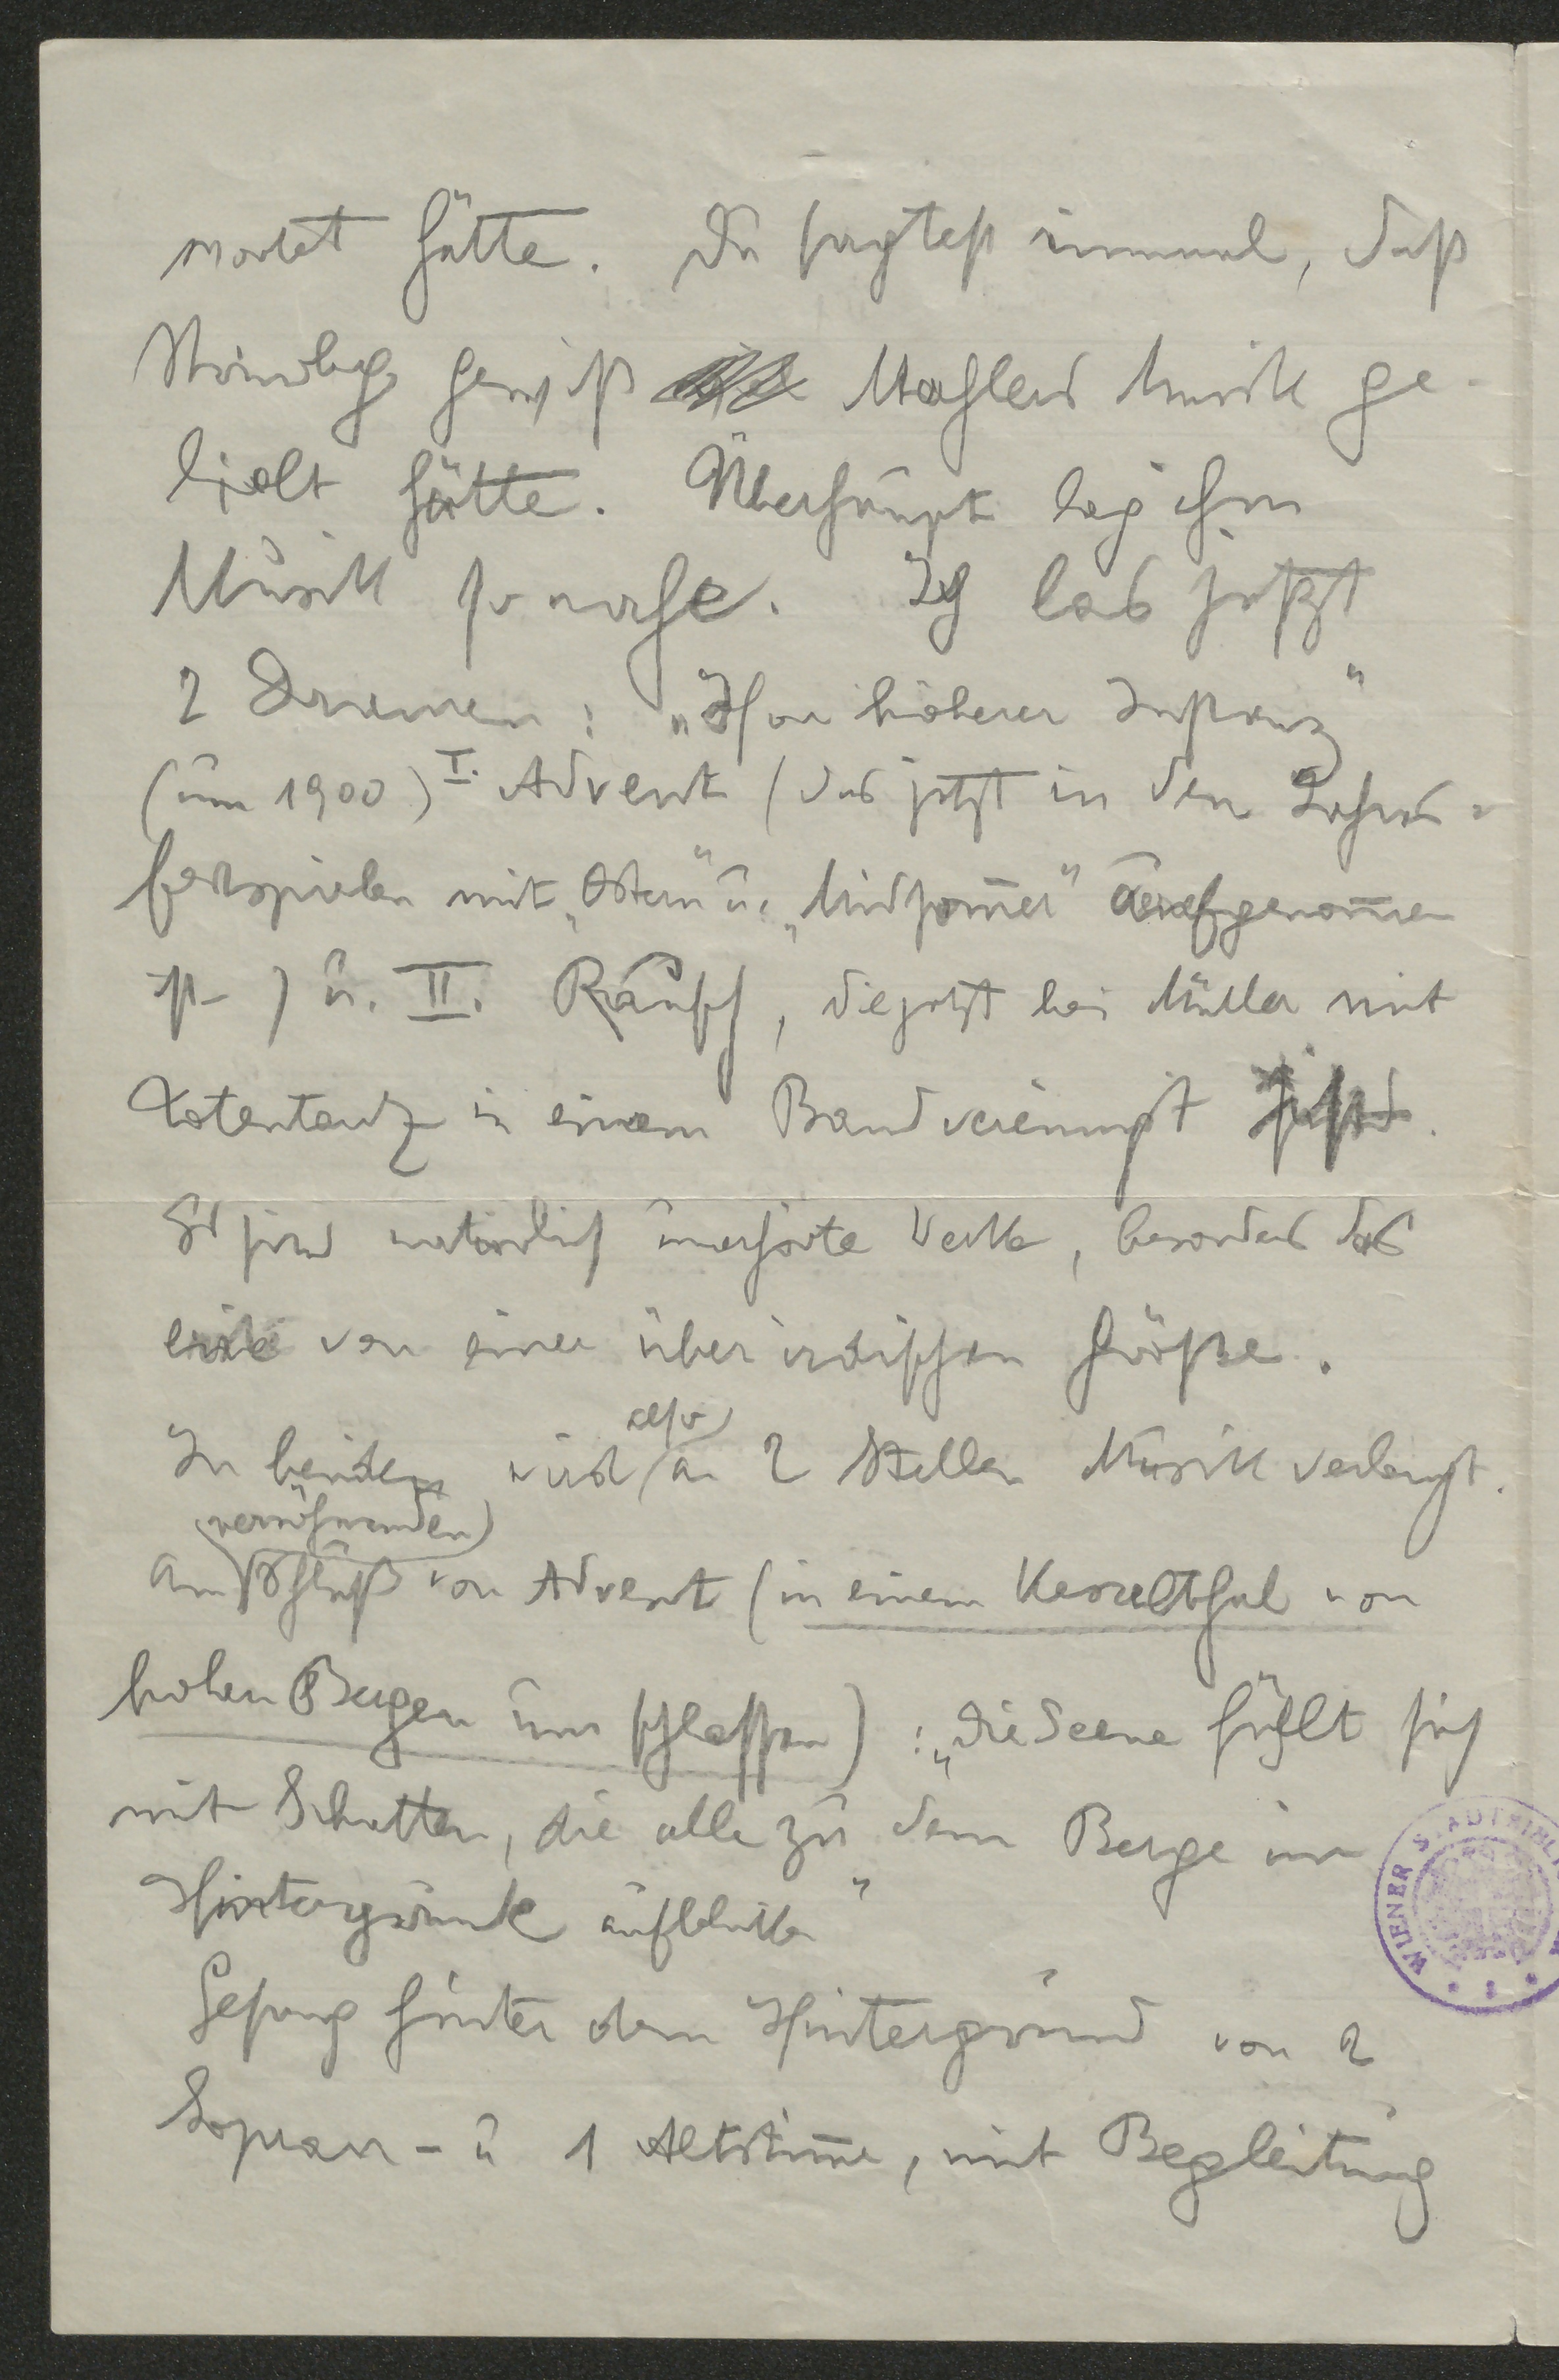 wortet hätte. Du sagtest einmal, daß
Strindbg gewiß Mahlers Musik ge-
liebt hätte. Überhaupt lag ihm
Musik so nahe. Ich las jetzt
2 Dramen: „Vor höherer Instanz“
(um 1900) I. Advent (das jetzt in den Jahres-
festspielen mit „Ostern“ u. „Midsom̅er“ aufgenom̅en
ist) u. II. Rausch, die jetzt bei Müller mit
Totentanz in einem Band vereinigt sind.
Es sind natürlich unerhörte Werke, besonders das
erste von einer überirdischen Größe.
In beiden wird also an 2 Stellen Musik verlangt.
Am versöhnenden Schluß von Advent (in einem Kesselthal von
hohen Bergen umschlossen): „Die Scene füllt sich
mit Schatten, die alle zu dem Berge im
Hintergrunde aufblicken“
Gesang hinter dem Hintergrund von 2
Sopran- u 1 Altstim̅e, mit Begleitung
WIENER STADTBIBL